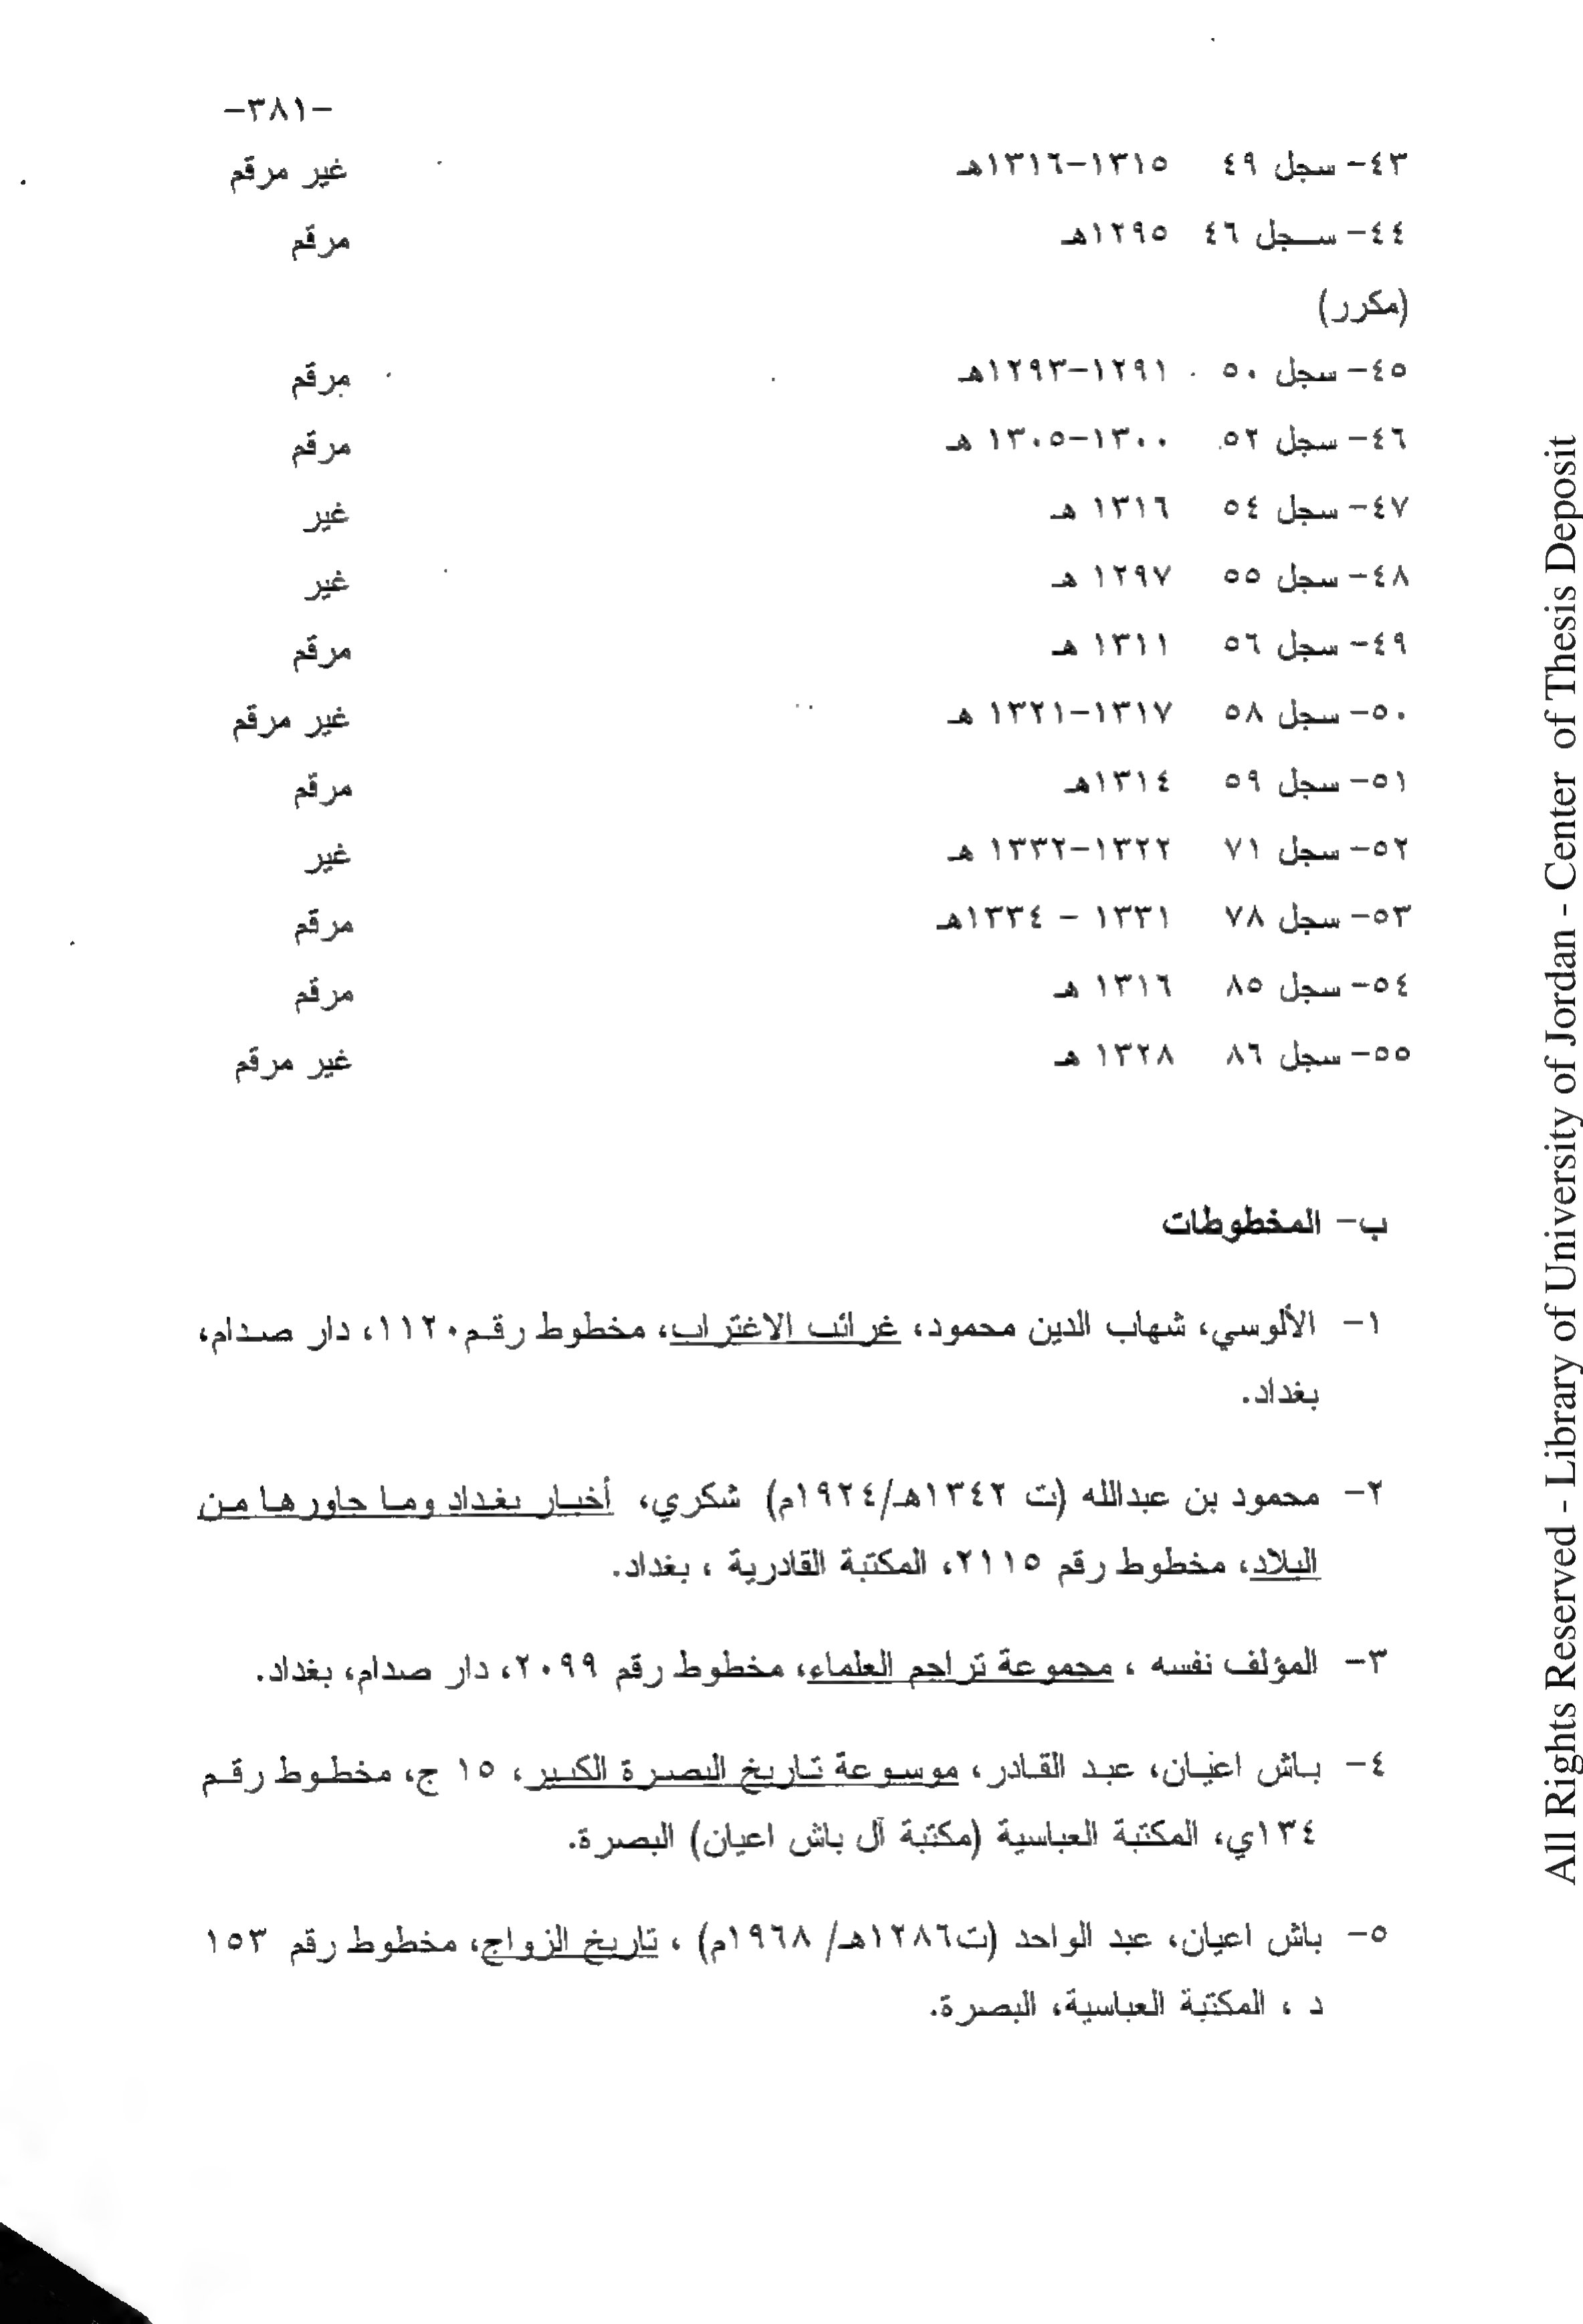 -٣٨١-
٤٣- سجل ٤٩ ١٣١٥-١٣١٦هـ غير مرقم
٤٤- سجل ٤٦ ١٢٩٥هـ مرقم
(مكرر)
٤٥- سجل ٥٠ ١٢٩١-١٢٩٣هـ مرقم
٤٦- سجل ٥٢ ١٣٠٠-١٣٠٥ هـ مرقم
٤٧- سجل ٥٤ ١٣١٦ هـ غير
٤٨- سجل ٥٥ ١٢٩٧ هـ غير
٤٩- سجل ٥٦ ١٣١١ هـ مرقم
٥٠- سجل ٥٨ ١٣١٧-١٣٢١ هـ غير مرقم
٥١- سجل ٥٩ ١٣١٤هـ مرقم
٥٢- سجل ٧١ ١٣٢٢-١٣٣٢ هـ غير
٥٣- سجل ٧٨ ١٣٣١ - ١٣٣٤هـ مرقم
٥٤- سجل ٨٥ ١٣١٦ هـ مرقم
٥٥- سجل ٨٦ ١٣٢٨ هـ غير مرقم
ب- المخطوطات
١- الألوسي، شهاب الدين محمود، غرائب الاغتراب، مخطوط رقم١١٢٠، دار صدام،
بغداد.
٢- محمود بن عبدالله (ت ١٣٤٢هـ/١٩٢٤م) شكري، أخبار بغداد وما جاورها من
البلاد، مخطوط رقم ٢١١٥، المكتبة القادرية ، بغداد.
٣- المؤلف نفسه ، مجموعة تراجم العلماء، مخطوط رقم ٢٠٩٩، دار صدام، بغداد.
٤- باش اعيان، عبد القادر، موسوعة تاريخ البصرة الكبير، ١٥ ج، مخطوط رقم
١٣٤ي، المكتبة العباسية (مكتبة آل باش اعيان) البصرة.
٥- باش اعيان، عبد الواحد (ت١٢٨٦هـ/ ١٩٦٨م) ، تاريخ الزواج، مخطوط رقم ١٥٣
د ، المكتبة العباسية، البصرة.
All Rights Reserved - Library of University of Jordan - Center of Thesis Deposit